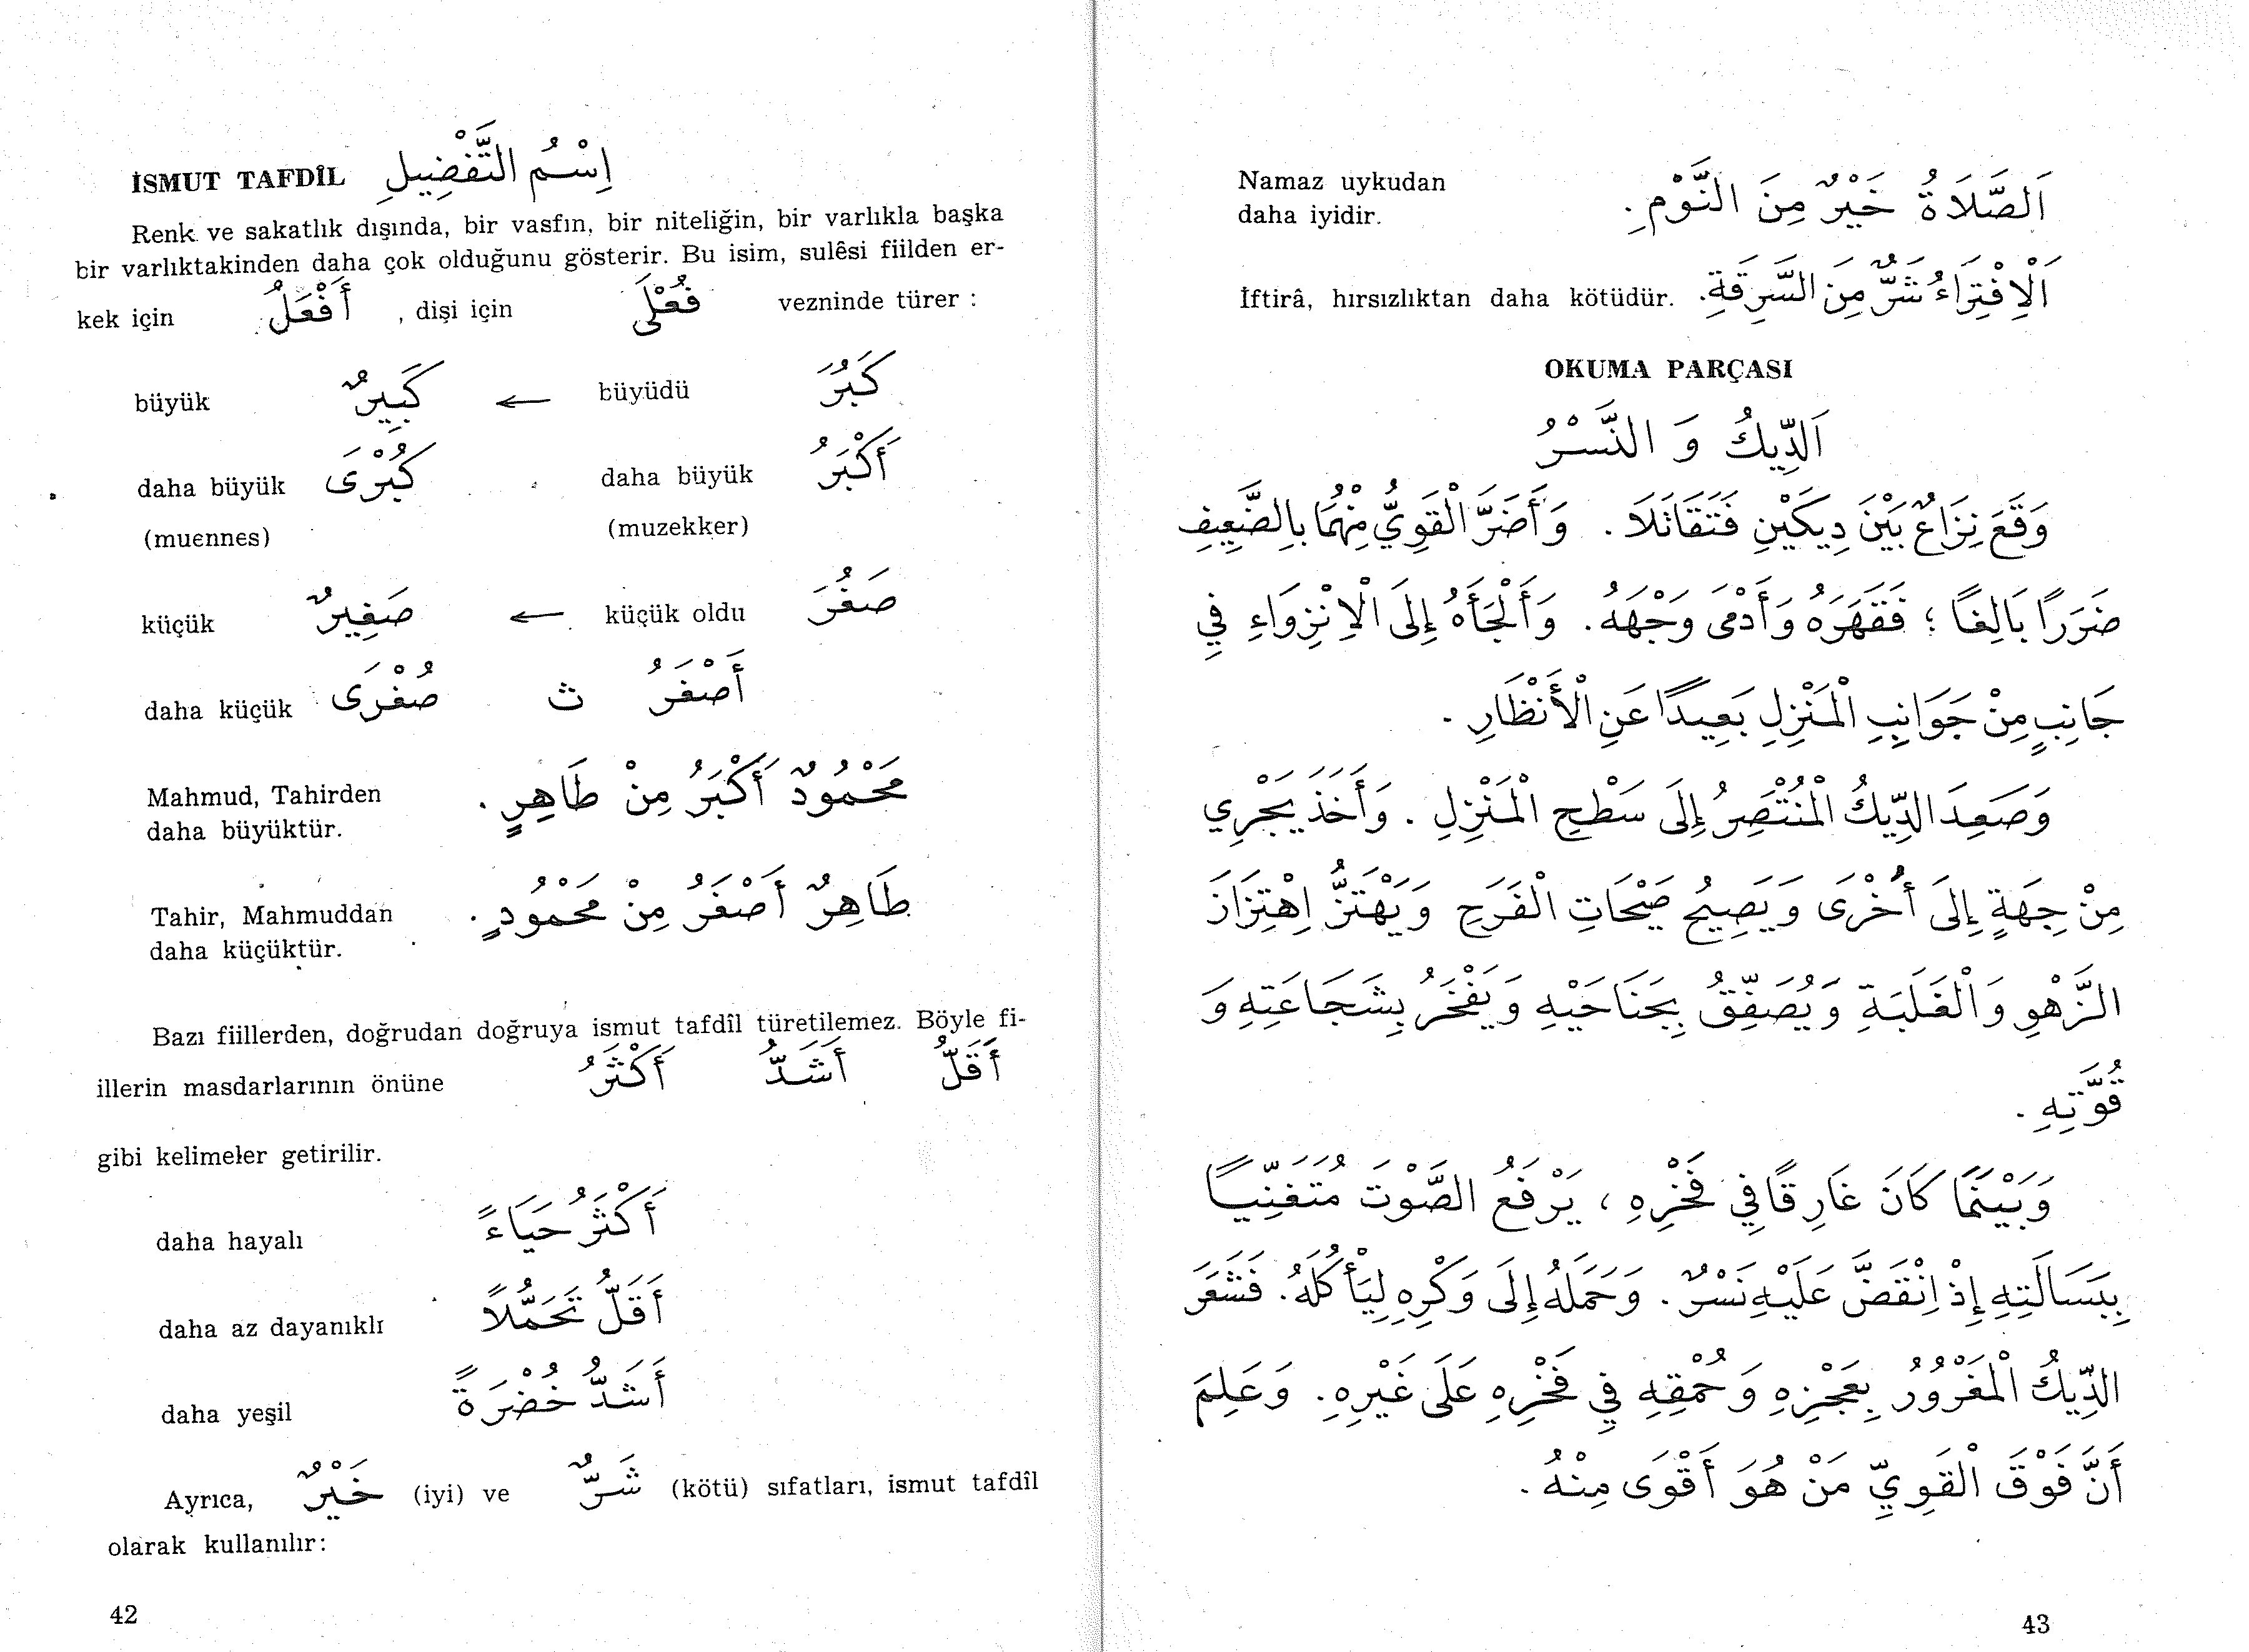 İSMUT TAFDÎL اِسْمُ التَّفْضِيلِ
Renk ve sakatlık dışında, bir vasfın, bir niteliğin, bir varlıkla başka
bir varlıktakinden daha çok olduğunu gösterir. Bu isim, sulêsi fiilden er-
kek için أَفْعَلُ , dişi için فُعْلَى vezninde türer :
büyük كَبِيرٌ ← büyüdü كَبُرَ
daha büyük كُبْرَى daha büyük أَكْبَرُ
(muennes) (muzekker)
küçük صَغِيرٌ ← küçük oldu صَغُرَ
daha küçük صُغْرَى ث أَصْغَرُ
Mahmud, Tahirden مَحْمُودٌ أَكْبَرُ مِنْ طَاهِرٍ .
daha büyüktür.
Tahir, Mahmuddan طَاهِرٌ أَصْغَرُ مِنْ مَحْمُودٍ .
daha küçüktür.
Bazı fiillerden, doğrudan doğruya ismut tafdîl türetilemez. Böyle fi-
illerin masdarlarının önüne أَكْثَرُ أَشَدُّ أَقَلُّ
gibi kelimeler getirilir.
daha hayalı أَكْثَرُ حَيَاءً
daha az dayanıklı أَقَلُّ تَحَمُّلاً
daha yeşil أَشَدُّ خُضْرَةً
Ayrıca, خَيْرٌ (iyi) ve شَرٌّ (kötü) sıfatları, ismut tafdîl
olarak kullanılır:
42
Namaz uykudan اَلصَّلَاةُ خَيْرٌ مِنَ النَّوْمِ .
daha iyidir.
İftirâ, hırsızlıktan daha kötüdür. اَلْاِفْتِرَاءُ شَرٌّ مِنَ السَّرِقَةِ .
OKUMA PARÇASI
اَلدِّيكُ وَ النَّسْرُ
وَقَعَ نِزَاعٌ بَيْنَ دِيكَيْنِ فَتَقَاتَلَا . وَأَضَرَّ الْقَوِيُّ مِنْهُمَا بِالضَّعِيفِ
ضَرَرًا بَالِغًا ؛ فَقَهَرَهُ وَأَدْمَى وَجْهَهُ . وَأَلْجَأَهُ إِلَى الْاِنْزِوَاءِ فِي
جَانِبٍ مِنْ جَوَانِبِ الْمَنْزِلِ بَعِيدًا عَنِ الْأَنْظَارِ .
وَصَعِدَ الدِّيكُ الْمُنْتَصِرُ إِلَى سَطْحِ الْمَنْزِلِ . وَأَخَذَ يَجْرِي
مِنْ جِهَةٍ إِلَى أُخْرَى وَيَصِيحُ صَيْحَاتِ الْفَرَحِ وَيَهْتَزُّ اِهْتِزَازَ
الزَّهْوِ وَالْغَلَبَةِ وَيُصَفِّقُ بِجَنَاحَيْهِ وَيَفْخَرُ بِشَجَاعَتِهِ وَ
قُوَّتِهِ .
وَبَيْنَمَا كَانَ غَارِقًا فِي فَخْرِهِ ، يَرْفَعُ الصَّوْتَ مُتَغَنِّيًا
بِبَسَالَتِهِ إِذْ اِنْقَضَّ عَلَيْهِ نَسْرٌ . وَحَمَلَهُ إِلَى وَكْرِهِ لِيَأْكُلَهُ . فَشَعَرَ
الدِّيكُ الْمَغْرُورُ بِعَجْزِهِ وَحُمْقِهِ فِي فَخْرِهِ عَلَى غَيْرِهِ . وَعَلِمَ
أَنَّ فَوْقَ الْقَوِيِّ مَنْ هُوَ أَقْوَى مِنْهُ .
43